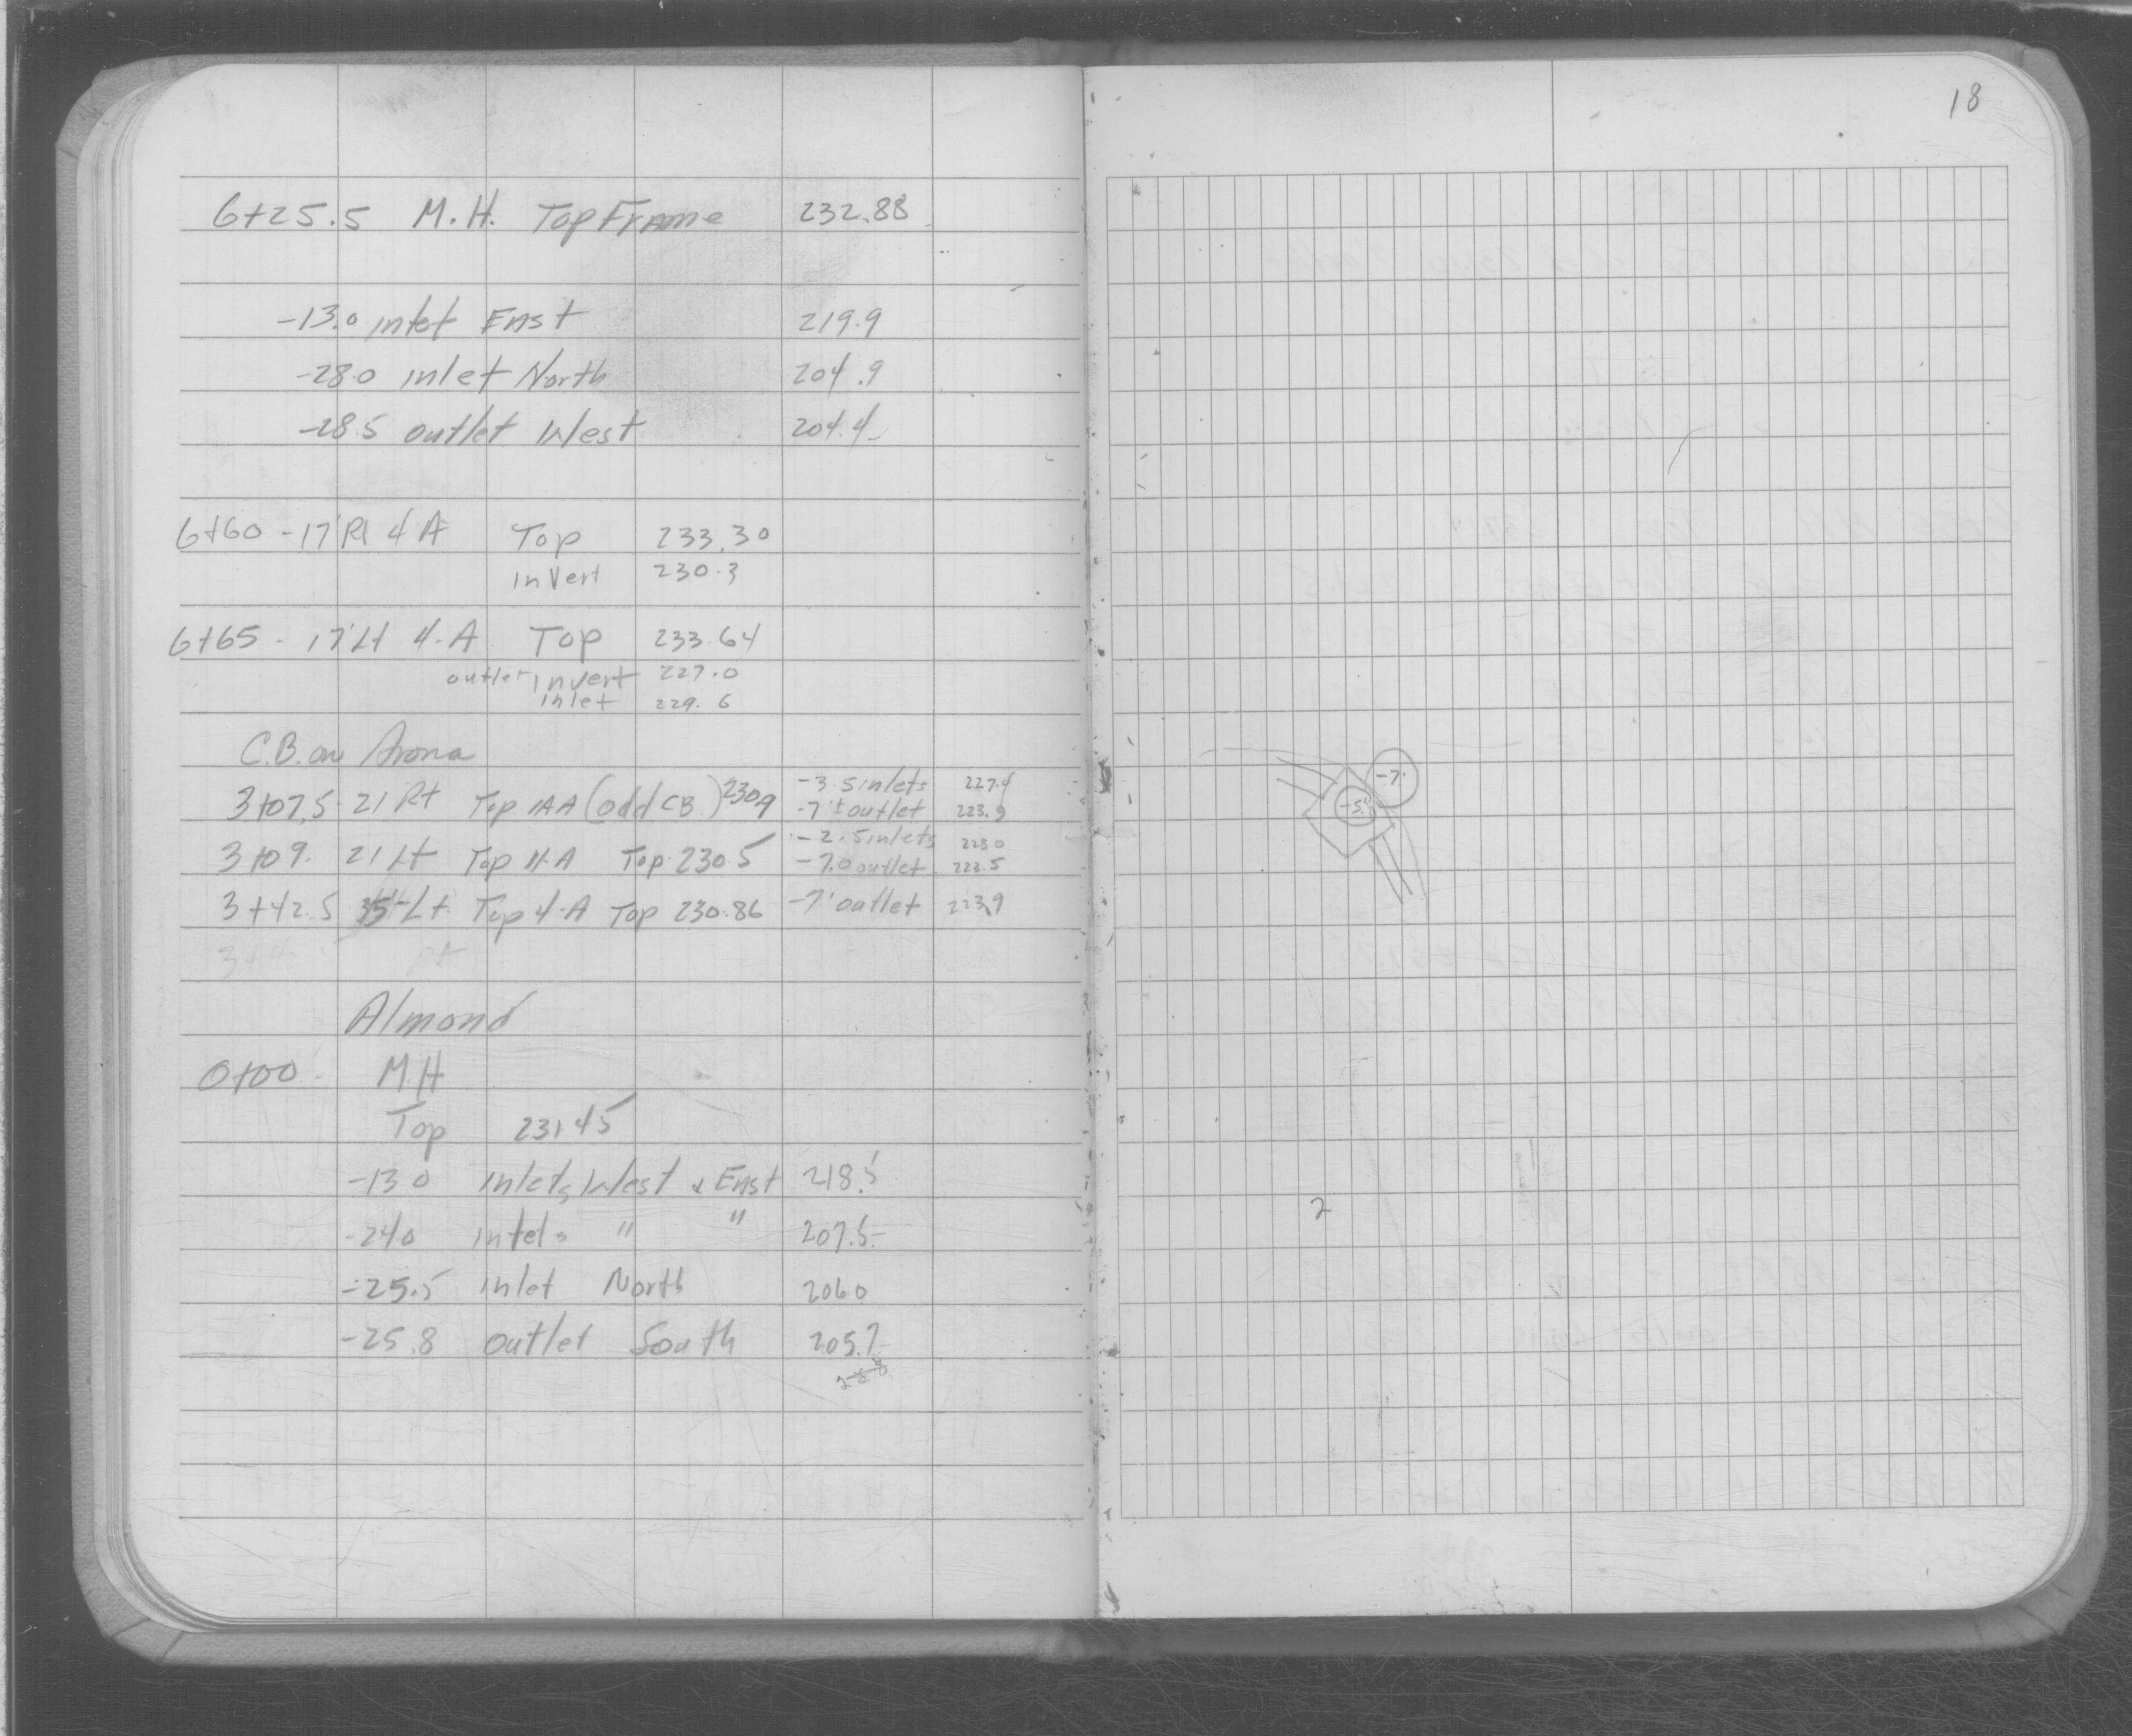 18
6+25.5 M.H. Top Frame 232.88
-13.0 inlet East 219.9
-28.0 inlet North 204.9
-28.5 outlet West 204.4
6+60 - 17' Rt 4 A Top 233.30
invert 230.3
6+65 - 17' Lt 4-A Top 233.64
outlet invert 227.0
inlet 229.6
C.B. on Arona
3+07.5 21 Rt Top (odd CB) 230.9 -3.5 inlets 227.4
-7'± outlet 223.9
3+09. 21 Lt Top 4-A Top 230.5 -2.5 inlets
-7.0 outlet 223.5
3+42.5 35' Lt Top 4-A Top 230.86 -7' outlet 223.9
Almond
0+00 M.H
Top 231.45
-13.0 inlets West & East 218.5
-24.0 inlets " " 207.5
-25.5 inlet North 206.0
-25.8 outlet South 205.7
-7.
-5'
2